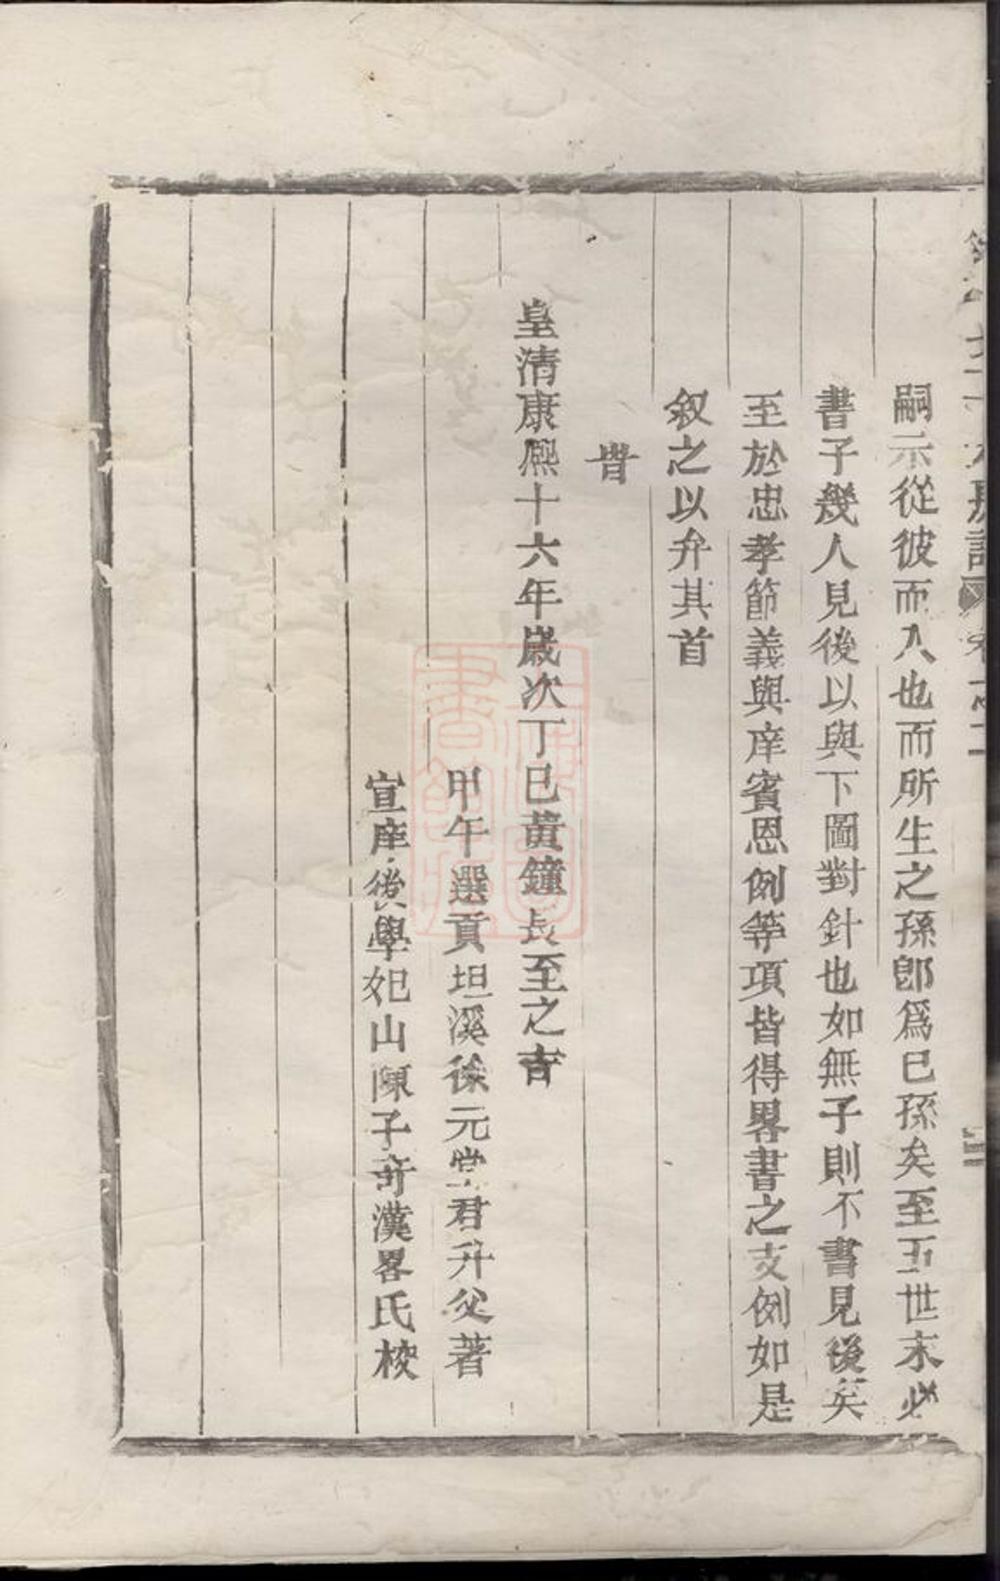 嗣示從彼而入也而所生之孫即爲已孫矣至五世末必
書子幾人見後以與下圖對針也如無子則不書見後矣
至於忠孝節義與庠賓恩例等項皆得畧書之支例如是
叙之以弁其首
旹
皇清康熈十六年歲次丁巳黃鐘長至之吉
甲午選貢坦溪徐元堂君升父著
宣庠後學妃山陳子奇漢畧氏校